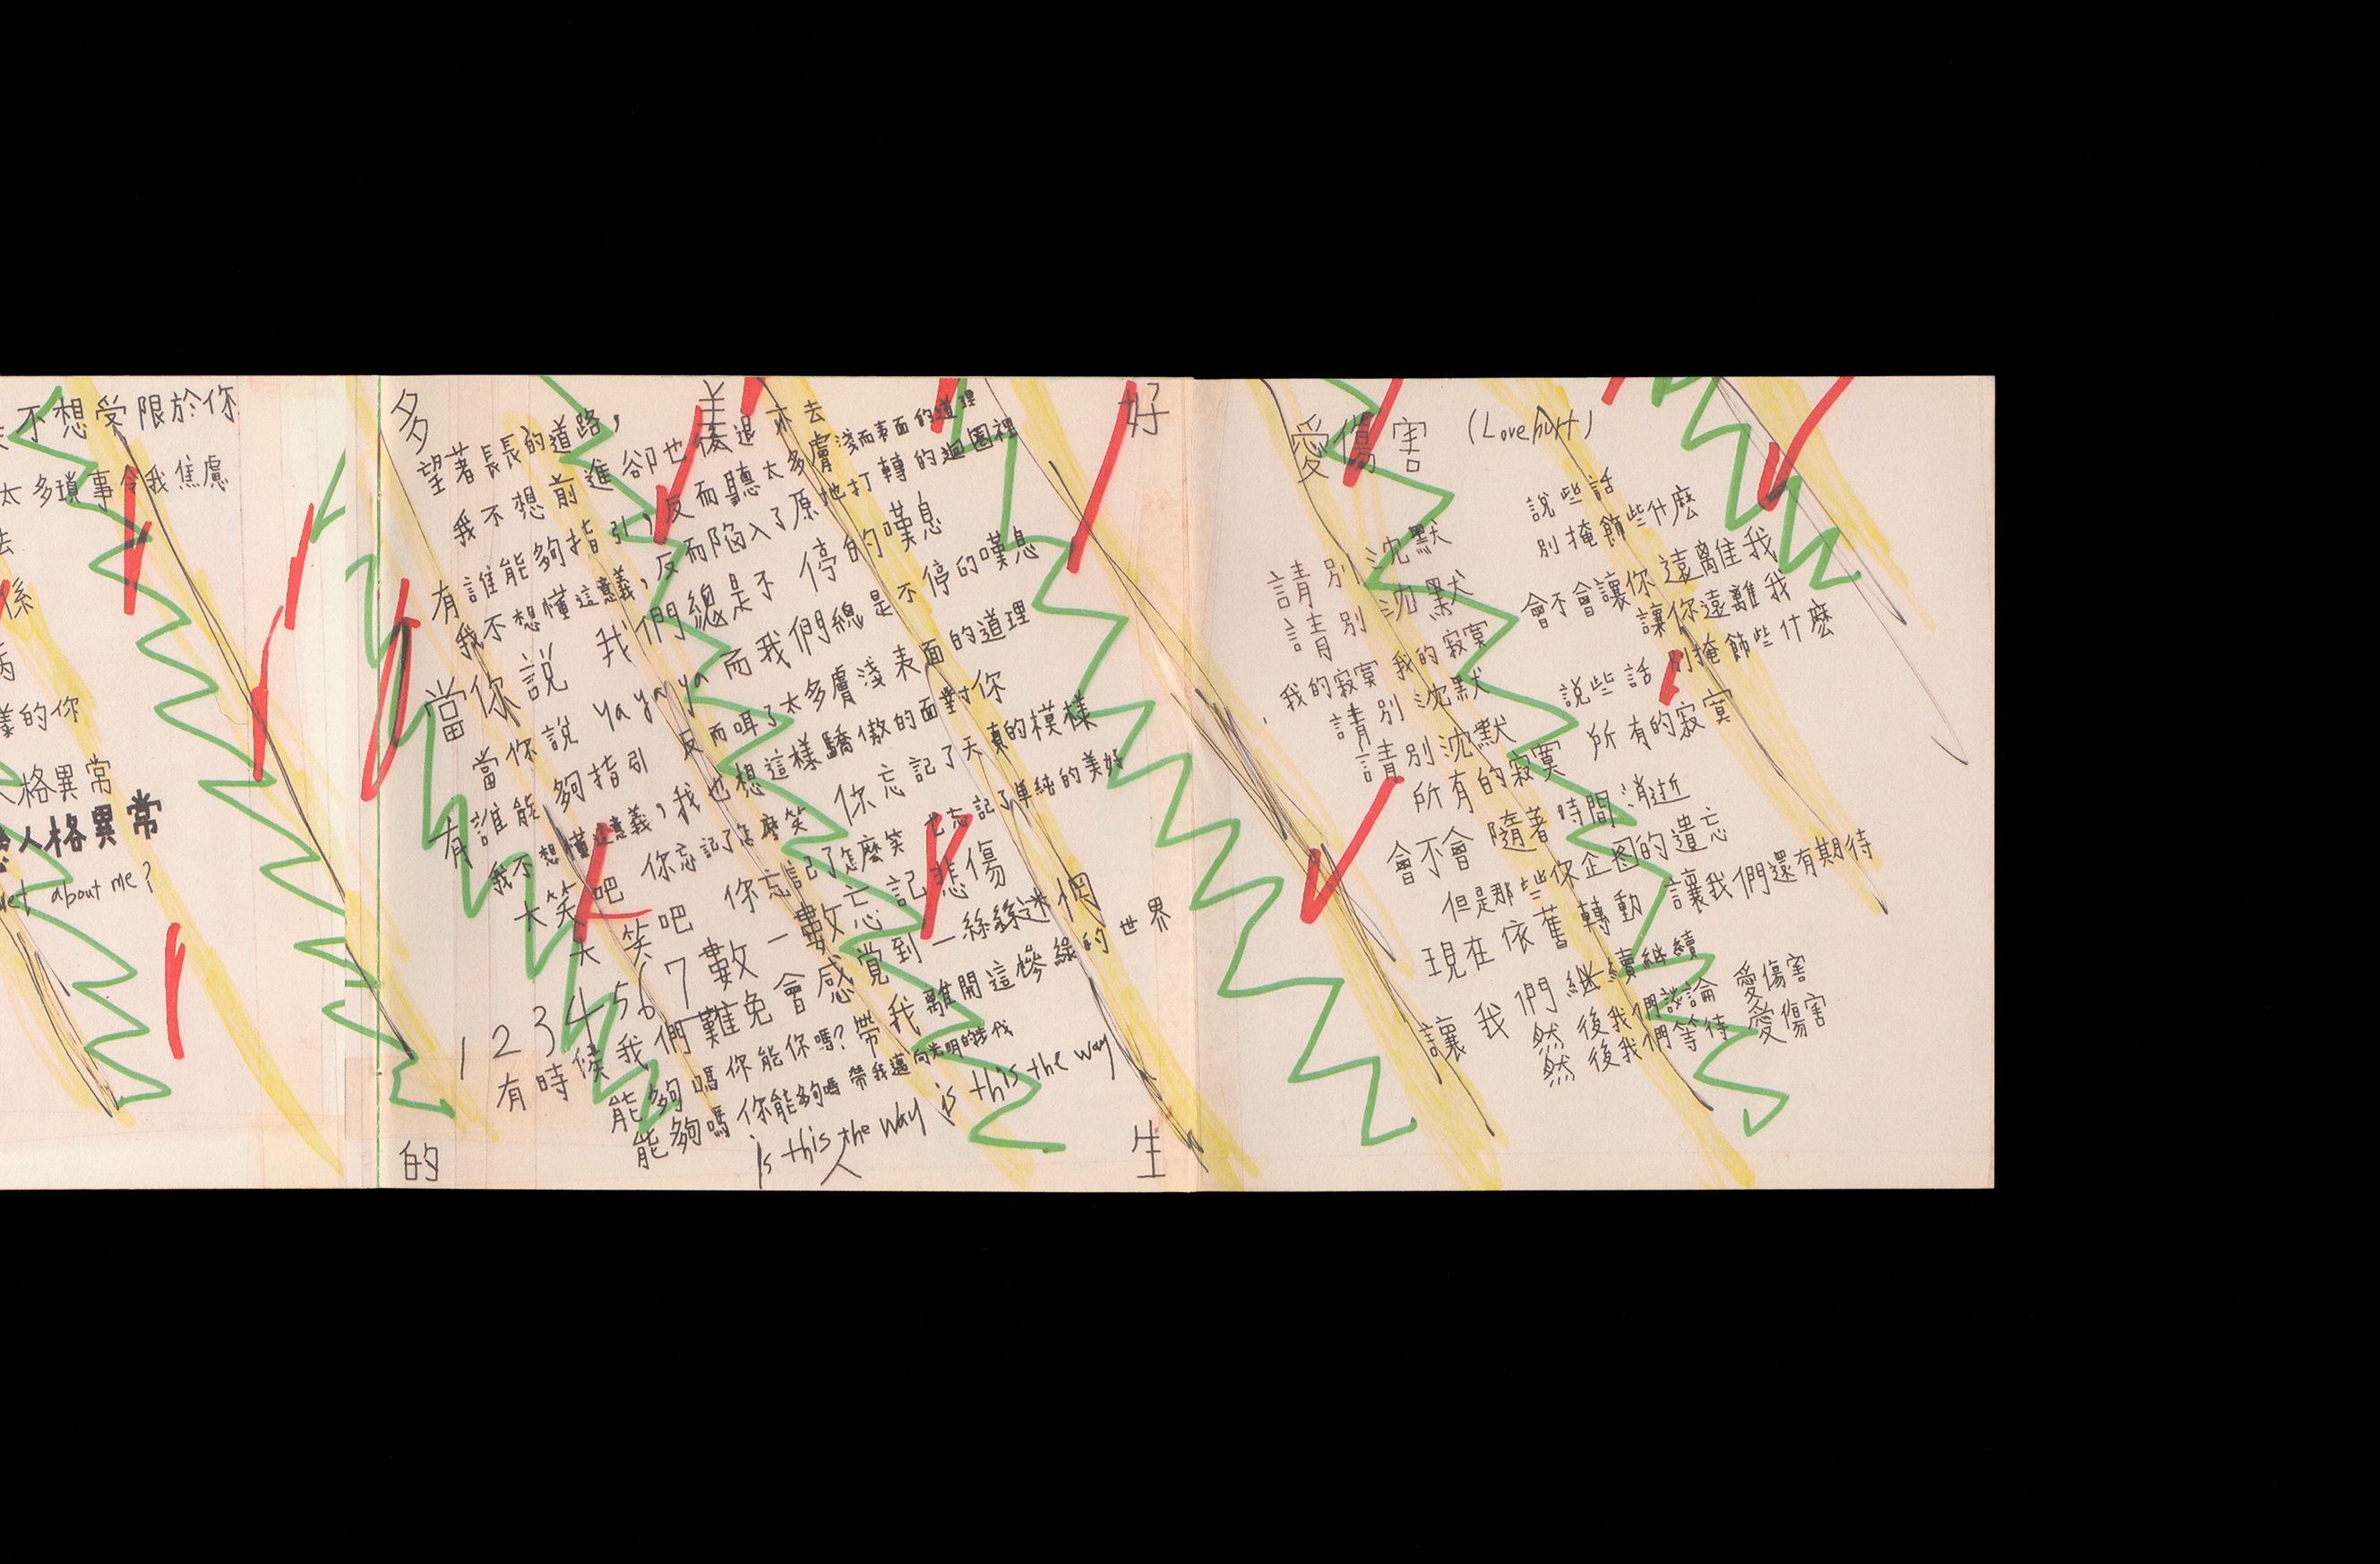 不想受限於你
太多瑣事令我焦慮
去
係
樣的你
人格異常
人格異常
about me?
多美好的人生
望著長長的道路，
我不想前進卻也後退不去
有誰能夠指引，反而聽太多膚淺而表面的道理
我不想懂這意義，反而陷入了原地打轉的迴圈裡
當你說 我們總是不停的嘆息
當你說 ya ya ya 而我們總是不停的嘆息
有誰能夠指引 反而哂了太多膚淺表面的道理
我不想懂這意義，我也想這樣驕傲的面對你
大笑吧 你忘記了怎麼笑 你忘記了天真的模樣
大笑吧 你忘記了怎麼笑 也忘記了單純的美好
1234567數一數忘記悲傷
有時候我們難免會感覺到一絲絲迷惘
能夠嗎你能你嗎？帶我離開這慘綠的世界
能夠嗎你能夠嗎帶我邁向光明的時代
is this the way is this the way
愛傷害 (Love hurt)
請別沈默
請別沈默
我的寂寞 我的寂寞
請別沈默
請別沈默
所有的寂寞 所有的寂寞
說些話
別掩飾些什麼
會不會讓你遠離我
讓你遠離我
說些話 別掩飾些什麼
會不會隨著時間消逝
但是那些你企圖的遺忘
現在依舊轉動 讓我們還有期待
讓我們繼續繼續
然後我們談論 愛傷害
然後我們等待 愛傷害